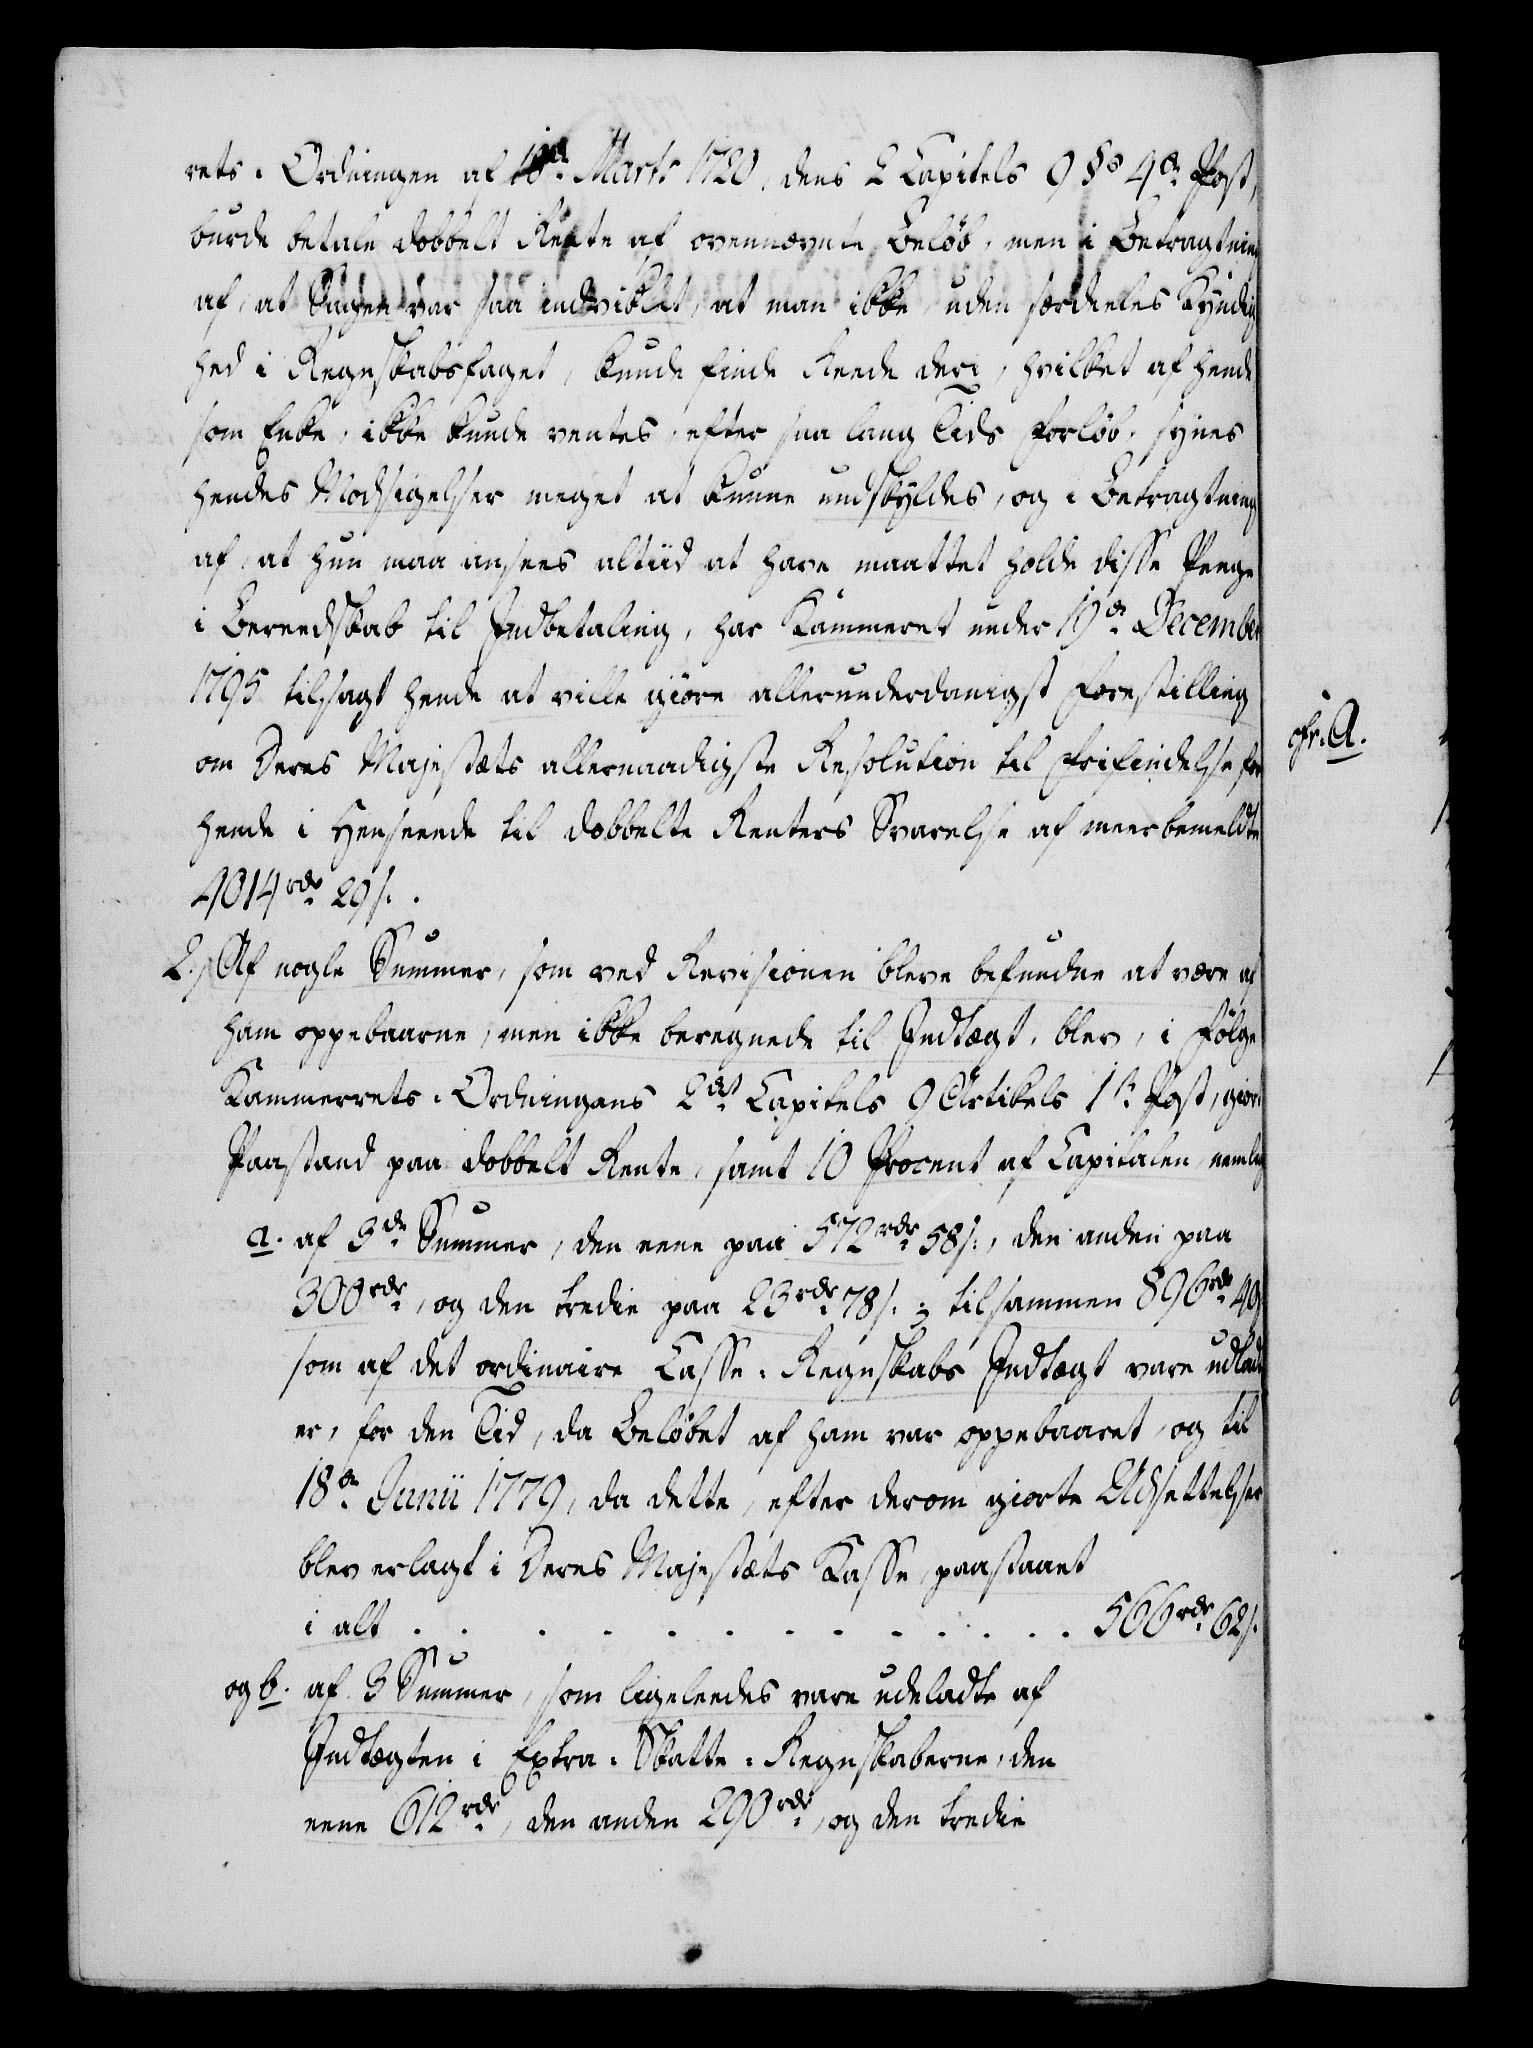 rets-Ordningen af 18de Marts 1720, dens 2 Capitels 9 §s 4de Post,
burde betale dobbelt Rente af ovennævnte Beløb, men i Betragtning
af, at Sagen var saa indviklet, at man ikke, uden særdeles Kyndig
hed i Regnskabsfaget, kunde finde Reede deri, hvilket af hende
som Enke, ikke kunde ventes, efter saa lang Tids Forløb, synes
hendes Modsigelser meget at kunne undskyldes, og i Betragtning
af, at hun maa ansees altiid at have maattet holde disse Penge
i Bereedskab til Indbetaling, har Kammeret under 19de December
1795 tilsagt hende at ville giøre allerunderdanigst Forestilling
om Deres Majestæts allernaadigste Resolution til Frifindelse for
cfr. A.
hende i Henseende til dobbelte Renters Svarelse af meerbemeldte
4014 rdr 29 s.
2., Af nogle Summer, som ved Revisionen bleve befundne at være af
ham oppebaarne, men ikke beregnede til Indtægt, blev, i Følge
Kammerrets-Ordningens 2det Capitels 9 Artikels 1ste Post, giort
Paastand paa dobbelt Rente, samt 10 Procent af Capitalen, nemlig
a. af 3de Summer, den eene paa 572 rdr 58 s., den anden paa
300 rdr, og den tredie paa 23 rdr 78 s.; tilsammen 896 rdr 40
som af det ordinaire Casse-Regnskabs Indtægt vare udladt
er, for den Tid, da Beløbet af ham var oppebaaret, og til
18de Junii 1779, da dette, efter derom giorte Udsettelser
blev erlagt i Deres Majestæts Kasse, paastaaet
i alt . . . . . . . . . . . . 566 rdr 62 s.
og b. af 3 Summer, som ligeleedes vare udeladte af
Indtægten i Extra-Skatte-Regnskaberne, den
eene 612 rdr, den anden 290 rdr, og den tredie